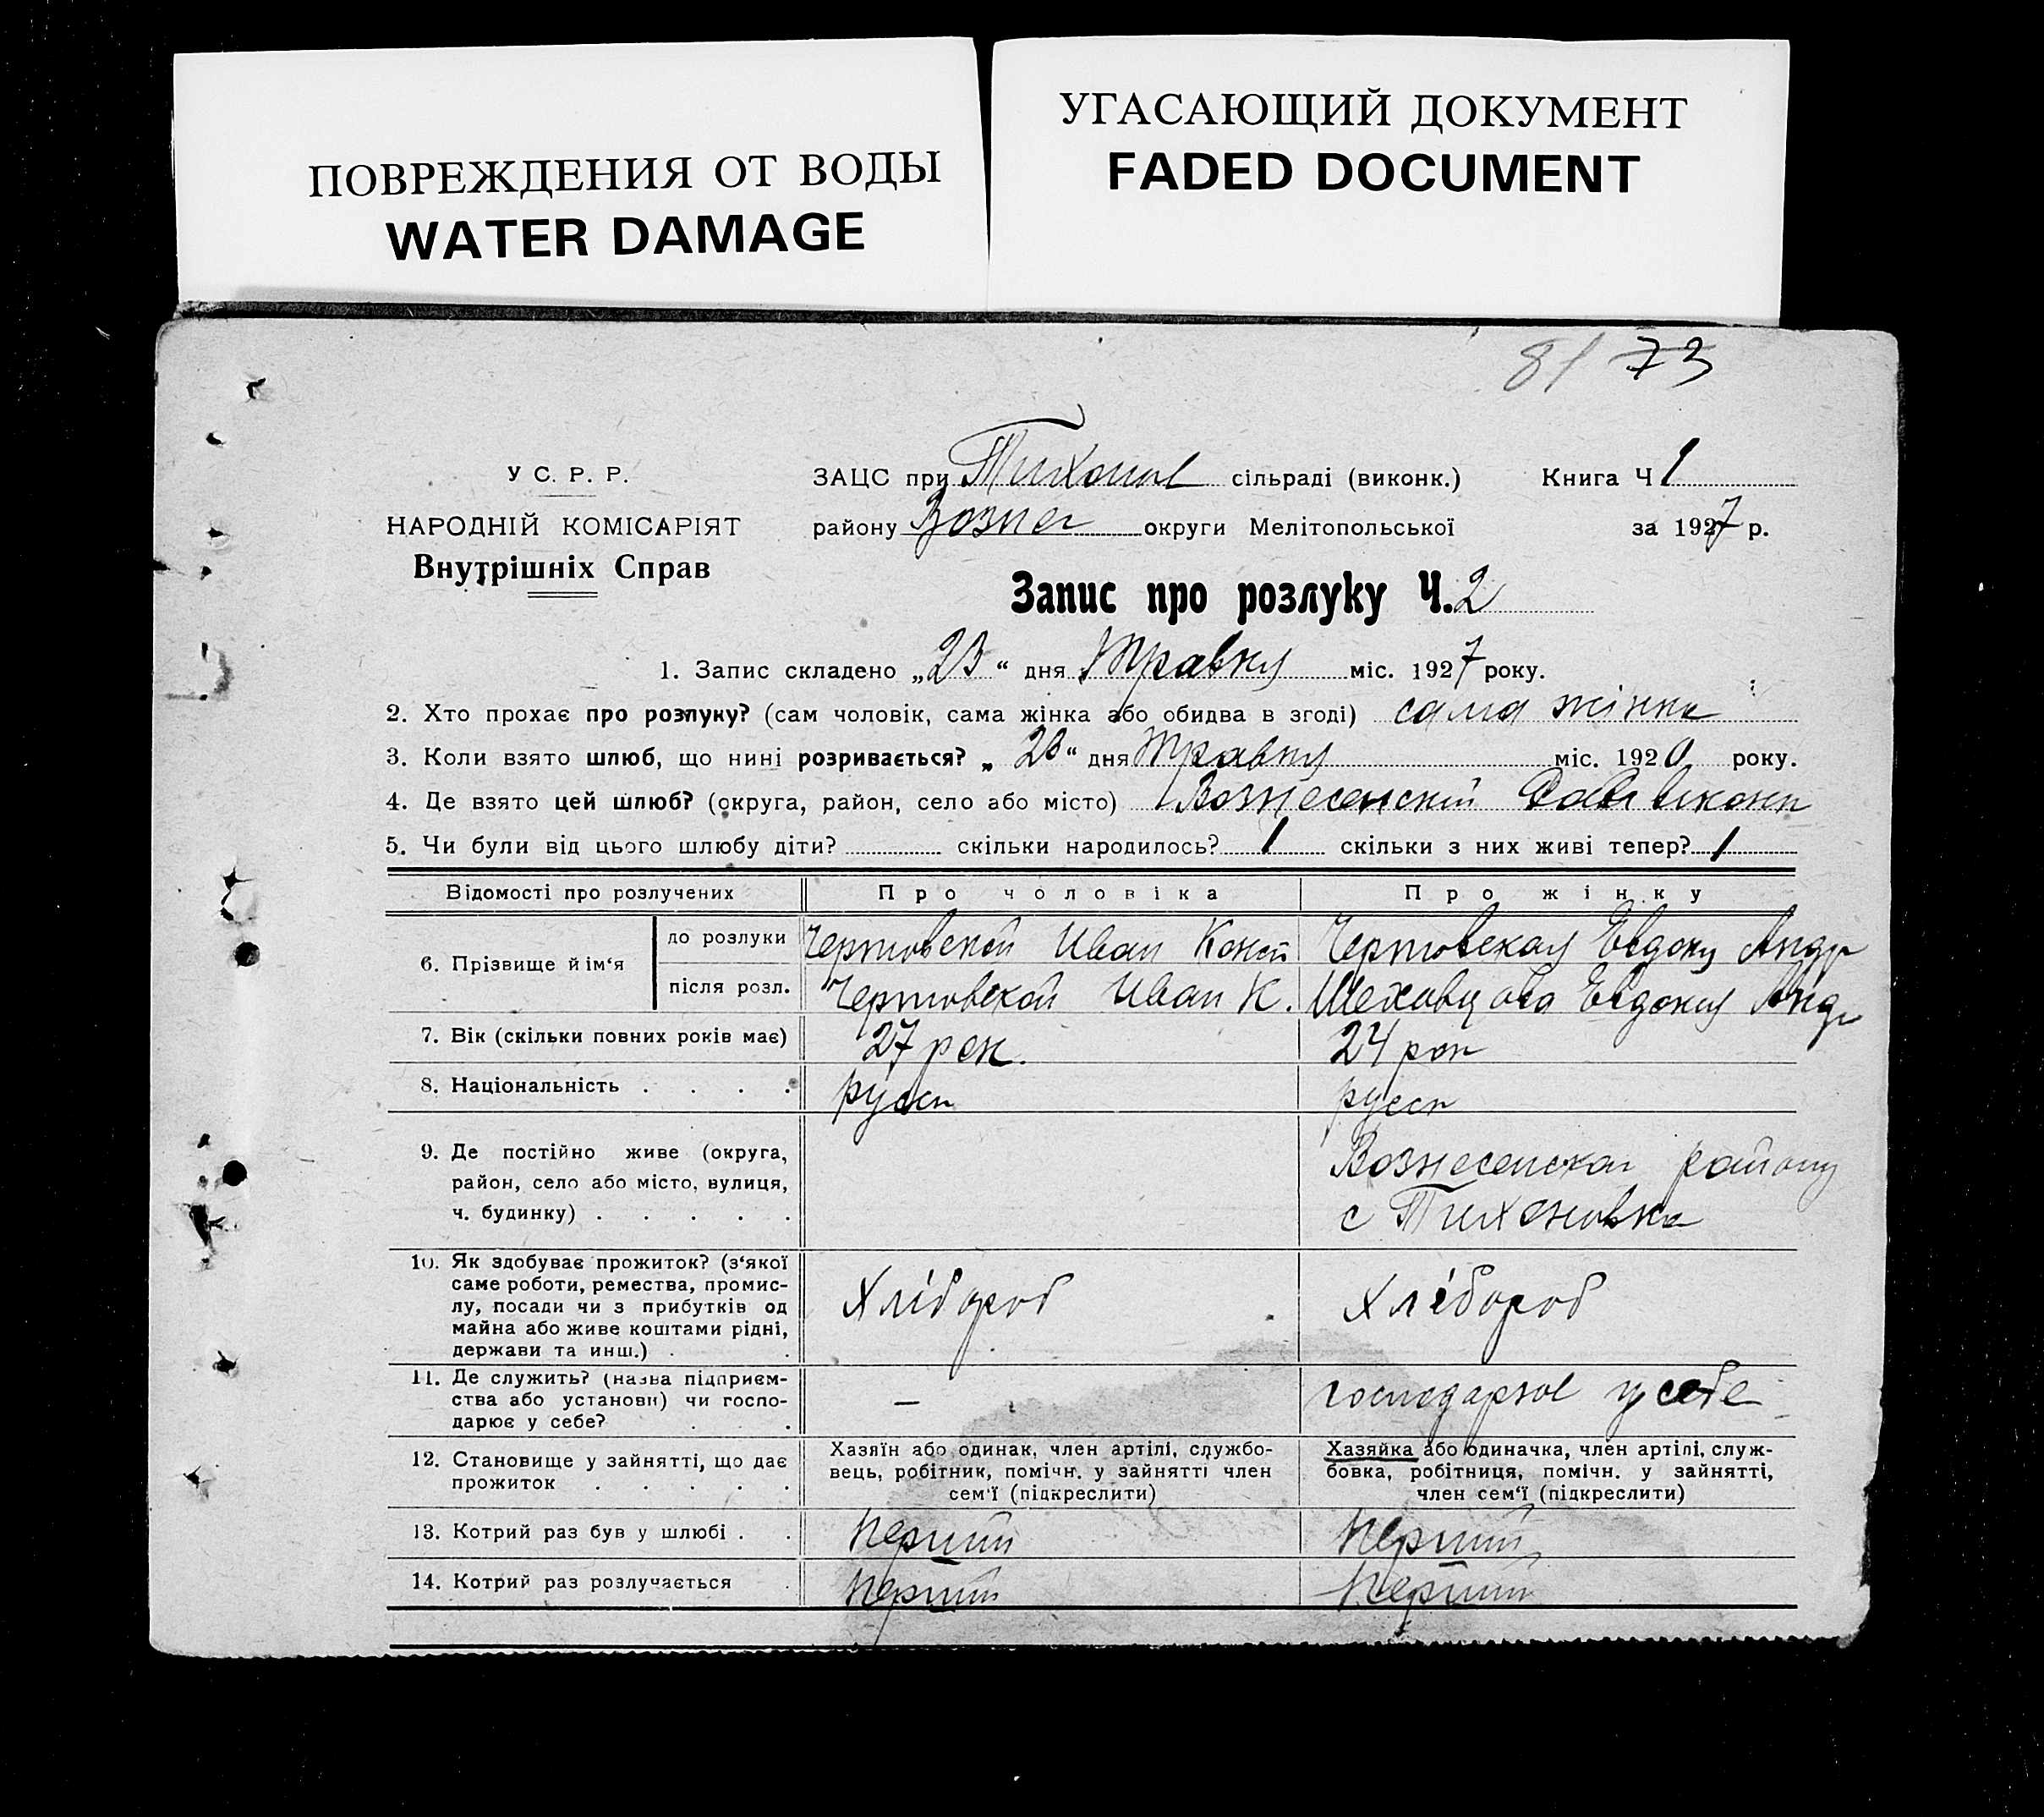 ПОВРЕЖДЕНИЯ ОТ ВОДЫ
WATER DAMAGE
УГАСАЮЩИЙ ДОКУМЕНТ
FADED DOCUMENT
81 73
У С. Р. Р.
НАРОДНІЙ КОМІСАРІЯТ
Внутрішніх Справ
ЗАЦС при Тихонов сільраді (виконк.) Книга Ч 1
району Вознес округи Мелітопольської за 1927 р.
Запис про розлуку Ч. 2
1. Запис складено „23“ дня Травня міс. 1927 року.
2. Хто прохає про розлуку? (сам чоловік, сама жінка або обидва в згоді) сама жінка
3. Коли взято шлюб, що нині розривається? „23“ дня Травня міс. 1920 року.
4. Де взято цей шлюб? (округа, район, село або місто) Вознесенскій
5. Чи були від цього шлюбу діти? скільки народилось? 1 скільки з них живі тепер? 1
Відомості про розлучених Про чоловіка Про жінку
6. Прізвище й ім‘я
до розлуки Чертовской Иван Конст Чертовская Евдокия Андр
після розл. Чертовской Иван К. Шеховцова Евдокия Анд
7. Вік (скільки повних років має) 27 рок. 24 рок
8. Національність . . . . русск русск
9. Де постійно живе (округа,
район, село або місто, вулиця,
ч. будинку) . . . . .
Вознесенскаг району
с Тихоновка
10. Як здобуває прожиток? (з‘якої
саме роботи, ремества, промис-
лу, посади чи з прибутків од
майна або живе коштами рідні,
держави та инш.) . .
Хлібороб Хлібороб
11. Де служить? (назва підприєм-
ства або установи) чи госпо-
дарює у себе? . .
— господарює у себе
12. Становище у зайнятті, що дає
прожиток . . . . .
Хазяїн або одинак, член артілі, службо-
вець, робітник, помічн. у зайнятті член
сем‘ї (підкреслити)
Хазяйка або одиначка, член артілі, служ-
бовка, робітниця, помічн. у зайнятті,
член сем‘ї (підкреслити)
13. Котрий раз був у шлюбі . . перший перший
14. Котрий раз розлучається . перший перший